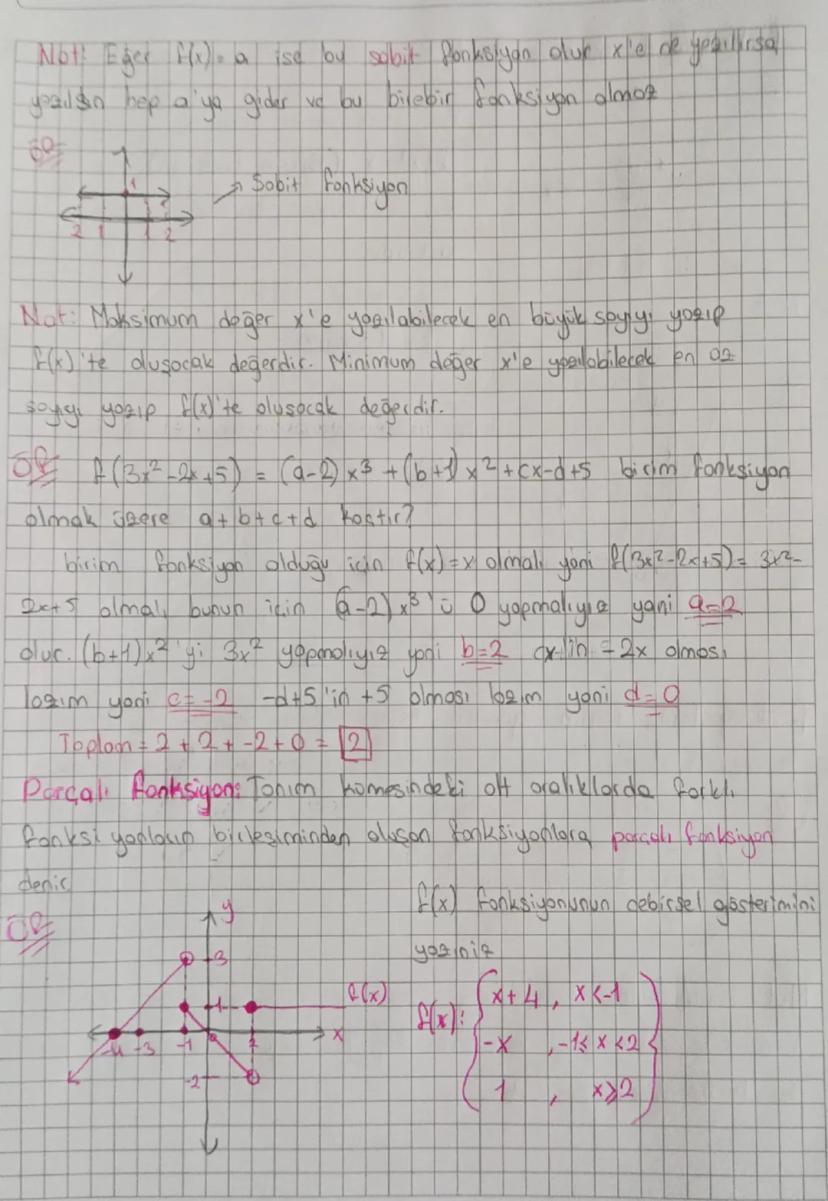 Not: Eğer f(x)=a ise bu sabit fonksiyon olur x'e de yazılırsa
yazılsın hep a'ya gider ve bu birebir fonksiyon olmaz
ÖR
1
2 1 1 2
→ Sabit fonksiyon
Not: Maksimum değer x'e yazılabilecek en büyük sayıyı yazıp
f(x)'te oluşacak değerdir. Minimum değer x'e yazılabilecek en az
sayıyı yazıp f(x)'te oluşacak değerdir.
ÖR f(3x²-2x+5) = (a-2)x³+(b+1)x²+cx-d+5 birim fonksiyon
olmak üzere a+b+c+d kaçtır?
birim fonksiyon olduğu için f(x)=x olmalı yani f(3x²-2x+5)=3x²-
2x+5 olmalı bunun için (a-2)x³'ü 0 yapmalıyız yani a=2
olur. (b+1)x²'yi 3x² yapmalıyız yani b=2 cx'in -2x olması
lazım yani c=-2 -d+5'in +5 olması lazım yani d=0
Toplam = 2+2+-2+0 = 2
Parçalı fonksiyon: Tanım kümesindeki alt aralıklarda farklı
fonksiyonların birleşiminden oluşan fonksiyonlara parçalı fonksiyon
denir
ÖR
f(x) fonksiyonunun cebirsel gösterimini
yazınız
y
3
1
f(x)
-4 -3 -1 2 x
-2
f(x): { x+4 , x<-1
-x , -1≤x<2
1 , x≥2 }